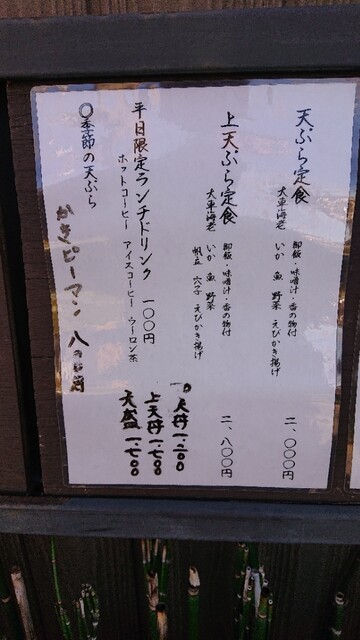 天ぷら定食
御飯・味噌汁・香の物付
大車海老 いか 魚 野菜 えびかき揚げ
二、〇〇〇円
上天ぷら定食
御飯・味噌汁・香の物付
大車海老 いか 魚 野菜 えびかき揚げ
帆立 穴子
二、八〇〇円
天丼 一.二〇〇
上天丼 一.七〇〇
天盛 一.七〇〇
平日限定ランチドリンク 一〇〇円
ホットコーヒー アイスコーヒー ウーロン茶
◎季節の天ぷら
かき ピーマン 八〇〇円